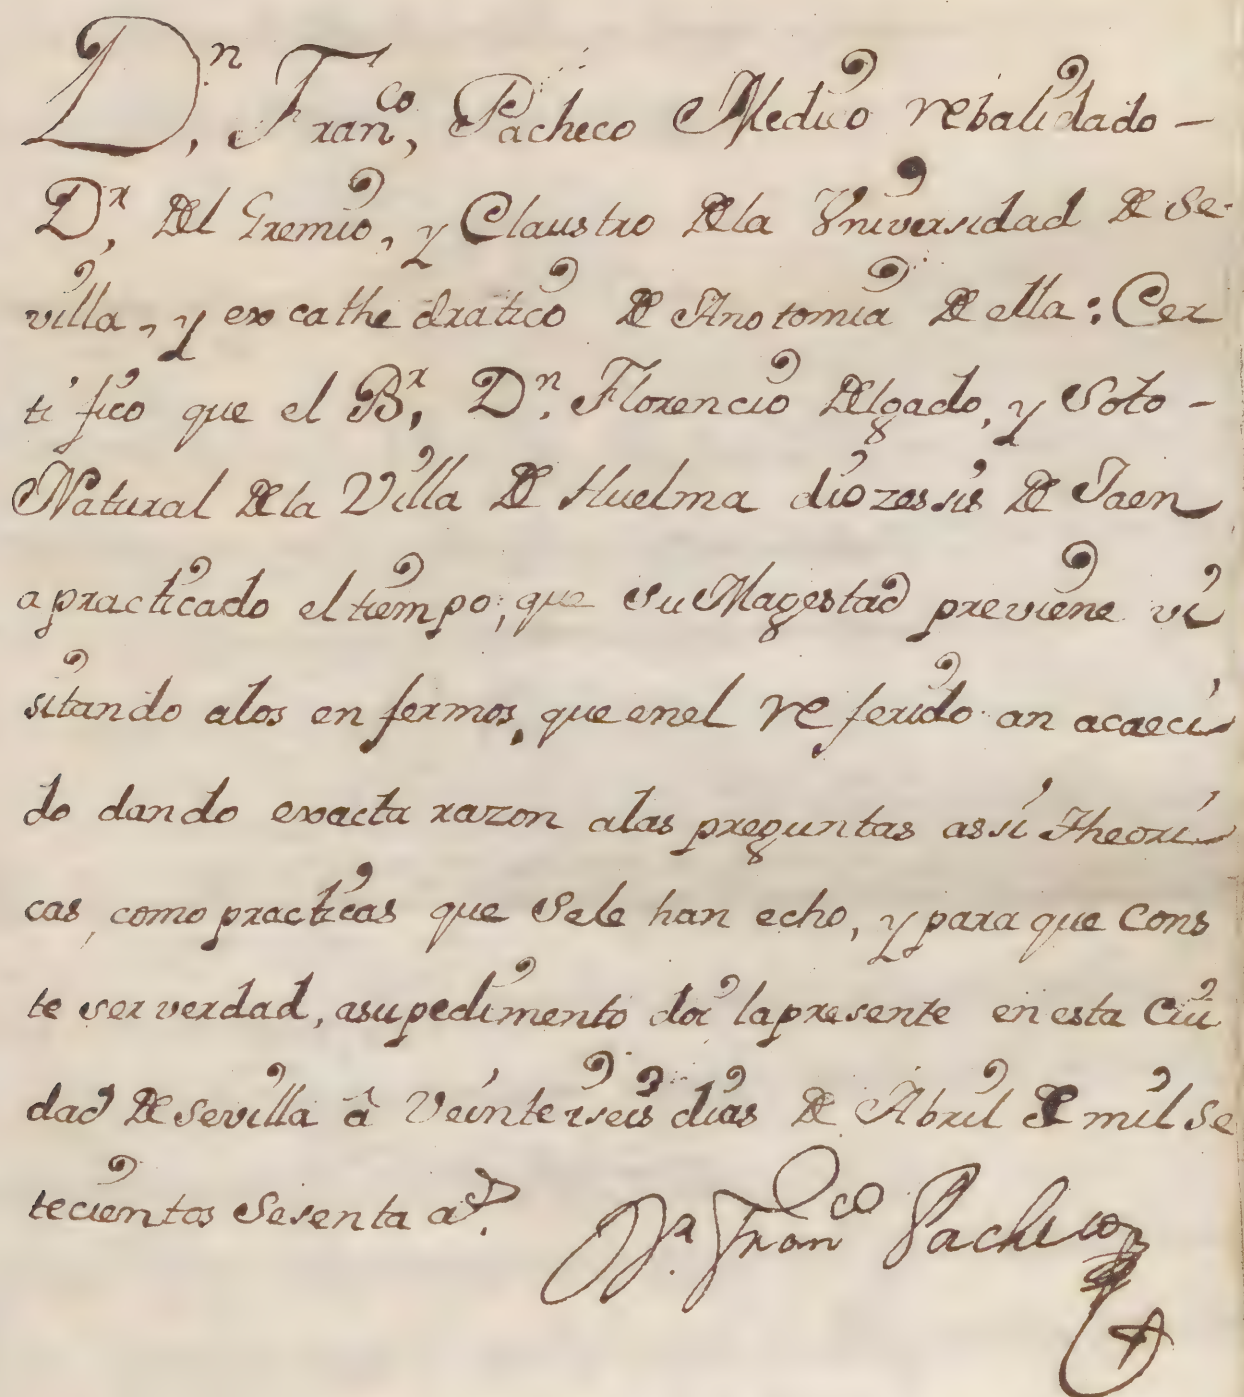 Dn. Franco, Pacheco Medico rebalidado -
Dr. del Gremio, y Claustro de la Vniversidad de Se-
villa, y excathedratico de Anotomia de ella: Cer
tifico que el Br. Dn. Florencio Delgado, y Soto -
Natural de la Villa de Huelma diozessis de Jaen
a practicado el tiempo, que su Magestad previene vi
sitando alos enfermos, que enel referido an acaeci
do dando exacta razon alas preguntas assi Theori
cas, como practicas que sele han echo, y para que Cons
te ser verdad, asupedimento doi lapresente en esta Ciu
dad de Sevilla â Veinteiseis dias de Abril de mil se
tecientos sesenta as.
Dr. Franco Pacheco